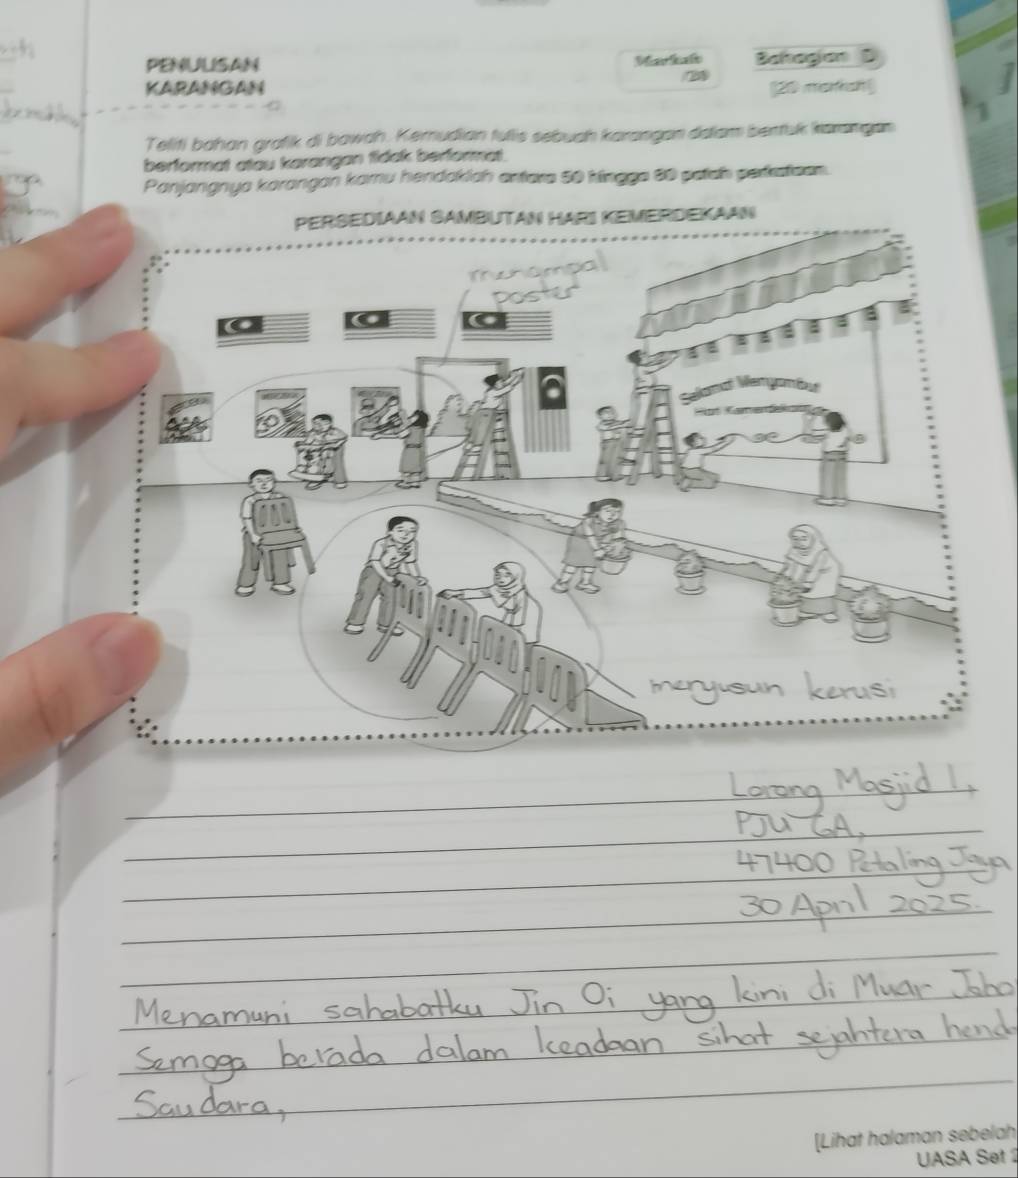 PENULISAN
KARANGAN
Markah
/20
Bahagian D
[20 markah]
Teliti bahan grafik di bawah. Kemudian tulis sebuah karangan dalam bentuk karangan
berformat atau karangan tidak berformat.
Panjangnya karangan kamu hendaklah antara 50 hingga 80 patah perkataan.
PERSEDIAAN SAMBUTAN HARI KEMERDEKAAN
menampal
poster
Selamat Menyambut
Hari Kemerdekaan
menyusun kerusi
Lorong Masjid 1,
PJU 6A,
47400 Petaling Jaya
30 April 2025.
Menamuni sahabatku Jin Oi yang kini di Muar Joho
Semoga berada dalam keadaan sihat sejahtera hend
Saudara,
[Lihat halaman sebelah
UASA Set 2